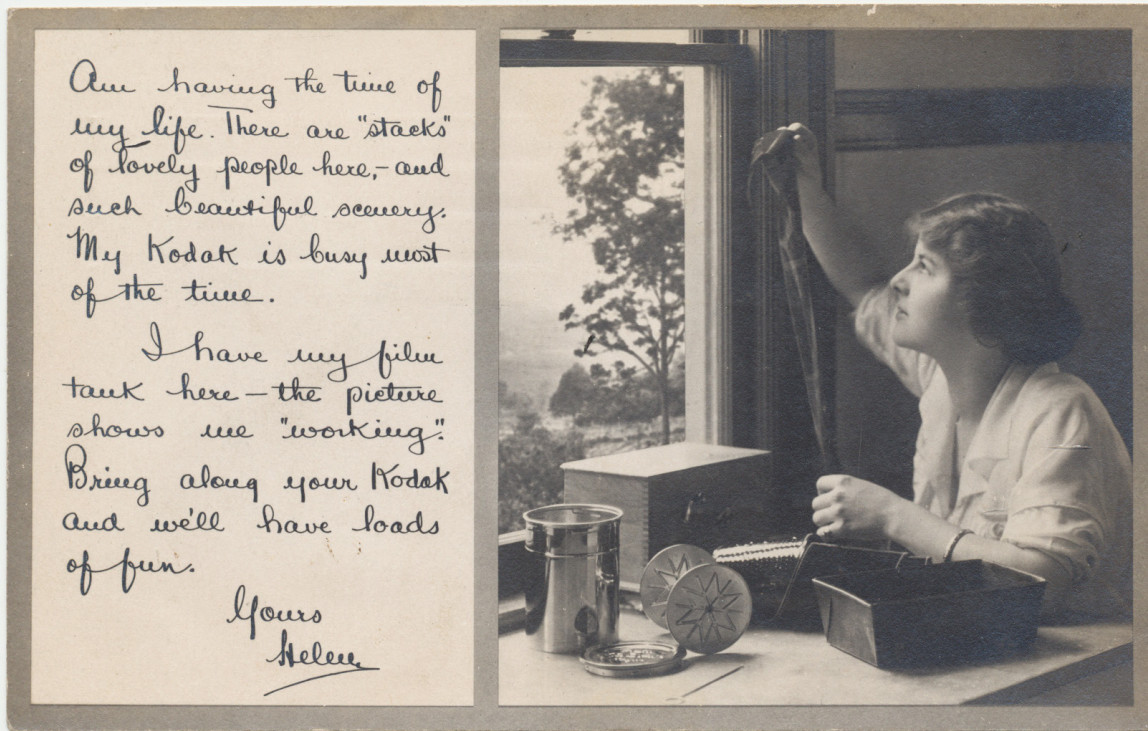 Am having the time of
my life. There are "stacks"
of lovely people here,- and
such beautiful scenery.
My Kodak is busy most
of the time.
I have my film
tank here – the picture
shows me "working".
Bring along your Kodak
and we'll have loads
of fun.
Yours
Helen